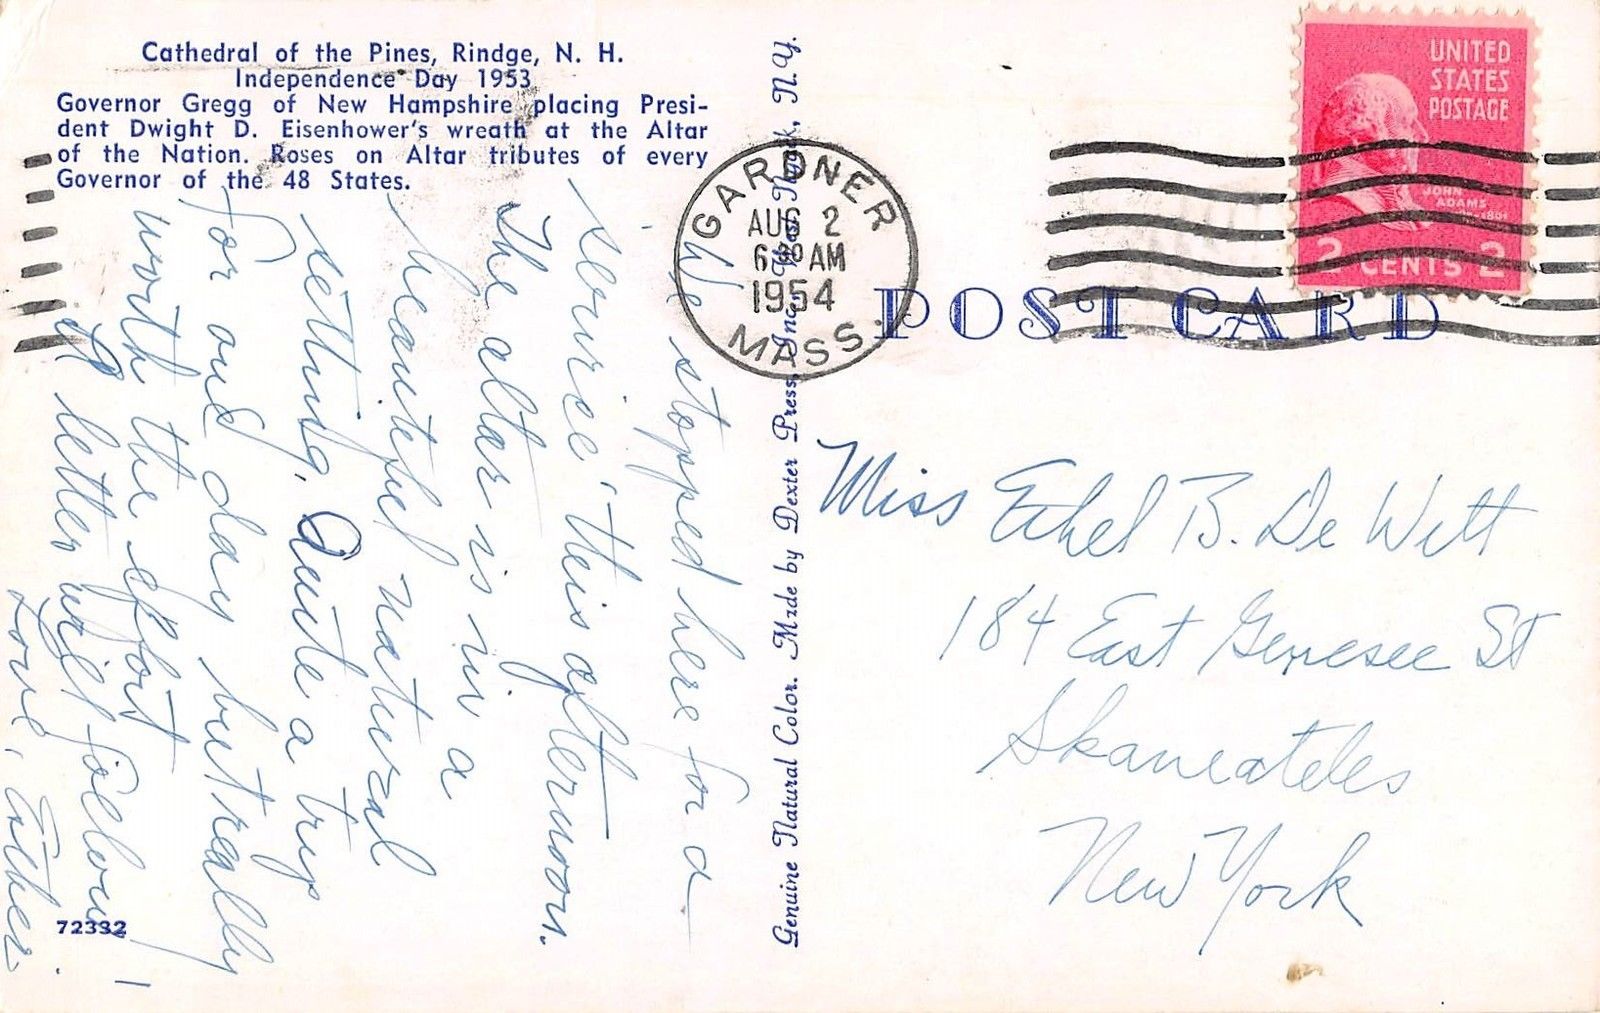 Cathedral of the Pines, Rindge, N. H.
Independence Day 1953
Governor Gregg of New Hampshire placing Presi-
dent Dwight D. Eisenhower's wreath at the Altar
of the Nation. Roses on Altar tributes of every
Governor of the 48 States.
We stopped here for a
service this afternoon.
The altar is in a
beautiful natural
setting. Quite a trip
for one day but really
worth the effort
A letter will follow!
Love, Esther.
72332
Genuine Natural Color. Made by Dexter Press, Inc., West Nyack, N.Y.
GARDNER
AUG 2
6 30 AM
1954
MASS.
UNITED
STATES
POSTAGE
JOHN
ADAMS
2 CENTS 2
POST CARD
Miss Ethel B. De Witt
184 East Genesee St
Skaneateles
New York